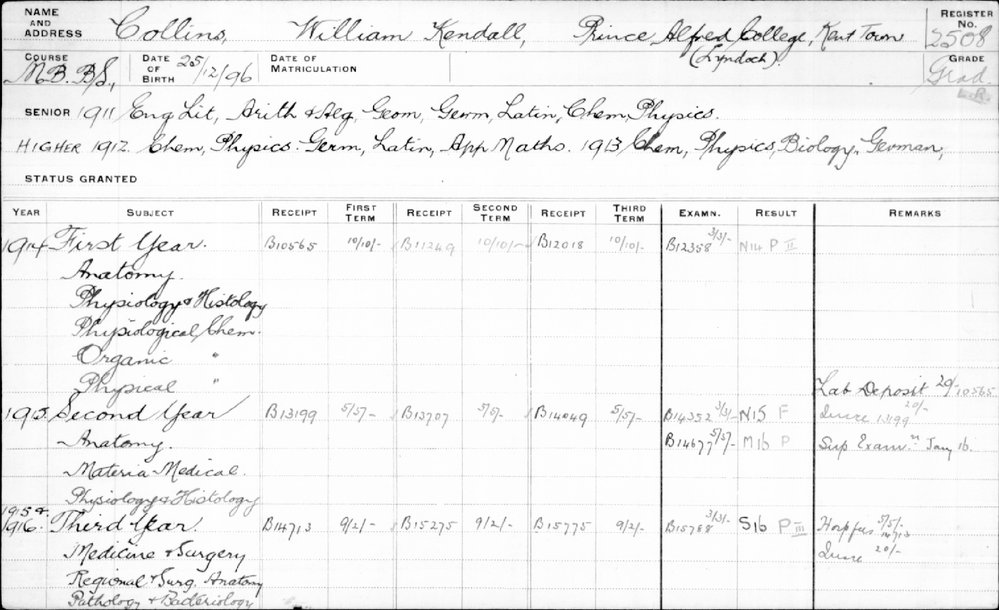 NAME AND ADDRESS Collins, William Kendall, Prince Alfred College, Kent Town REGISTER No. 2508
(Lyndoch)
COURSE M.B. B.S., DATE OF BIRTH 25/12/96 DATE OF MATRICULATION GRADE Grad.
SENIOR 1911 Eng Lit, Arith & Alg, Geom, Germ, Latin, Chem, Physics.
HIGHER 1912 Chem, Physics. Germ, Latin, App Maths. 1913 Chem, Physics, Biology, German,
STATUS GRANTED
YEAR SUBJECT RECEIPT FIRST TERM RECEIPT SECOND TERM RECEIPT THIRD TERM EXAMN. RESULT REMARKS
1914 First Year. B10565 10/10/- B11249 10/10/- B12018 10/10/- B12358 3/3/- N14 P II
Anatomy.
Physiology & Histology
Physiological Chem.
Organic "
Physical " Lab Deposit 20/- 10565
1915 Second Year B13199 5/5/- B13707 5/5/- B14049 5/5/- B14352 3/3/- N15 F 13199 20/-
Anatomy. B14677 5/5/- M16 P Sup Examn Jany 16.
Materia Medical.
Physiology & Histology
1915 & 1916. Third Year. B14713 9/2/- B15275 9/2/- B15775 9/2/- B15788 3/3/- S16 P III 5/5/- 14713
Medicine & Surgery 20/-
Regional & Surg. Anatomy
Pathology & Bacteriology